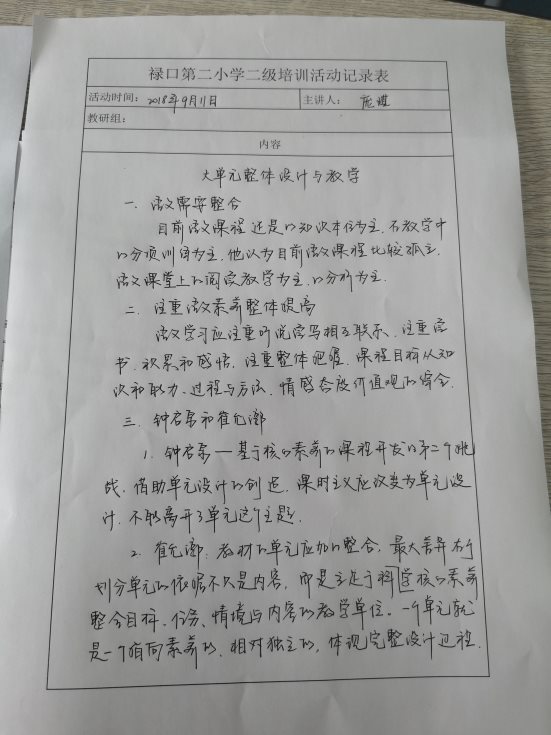 禄口第二小学二级培训活动记录表
活动时间: 2018年9月11日 主讲人:
教研组:
内容
大单元整体设计与教学
一. 语文需要整合
目前语文课程还是以知识本位为主. 在教学中
以分项训练为主. 他认为目前语文课程比较孤立.
语文课堂上以阅读教学为主. 以分析为主.
二. 注重语文素养整体提高
语文学习应注重听说读写相互联系. 注重读
书. 积累和感悟. 注重整体把握. 课程目标从知
识和能力、过程与方法、情感态度价值观的综合.
三. 钟启泉和崔允漷
1. 钟启泉—基于核心素养的课程开发的第一个挑
战. 借助单元设计的创造. 课时主义应改变为单元设
计. 不能离开了单元这个主题.
2. 崔允漷: 教材的单元应加以整合. 最大差异在于
划分单元的依据不只是内容, 即是立足于学科核心素养
整合目标、任务、情境与内容的教学单位. 一个单元就
是一个指向素养的. 相对独立的. 体现完整设计过程.